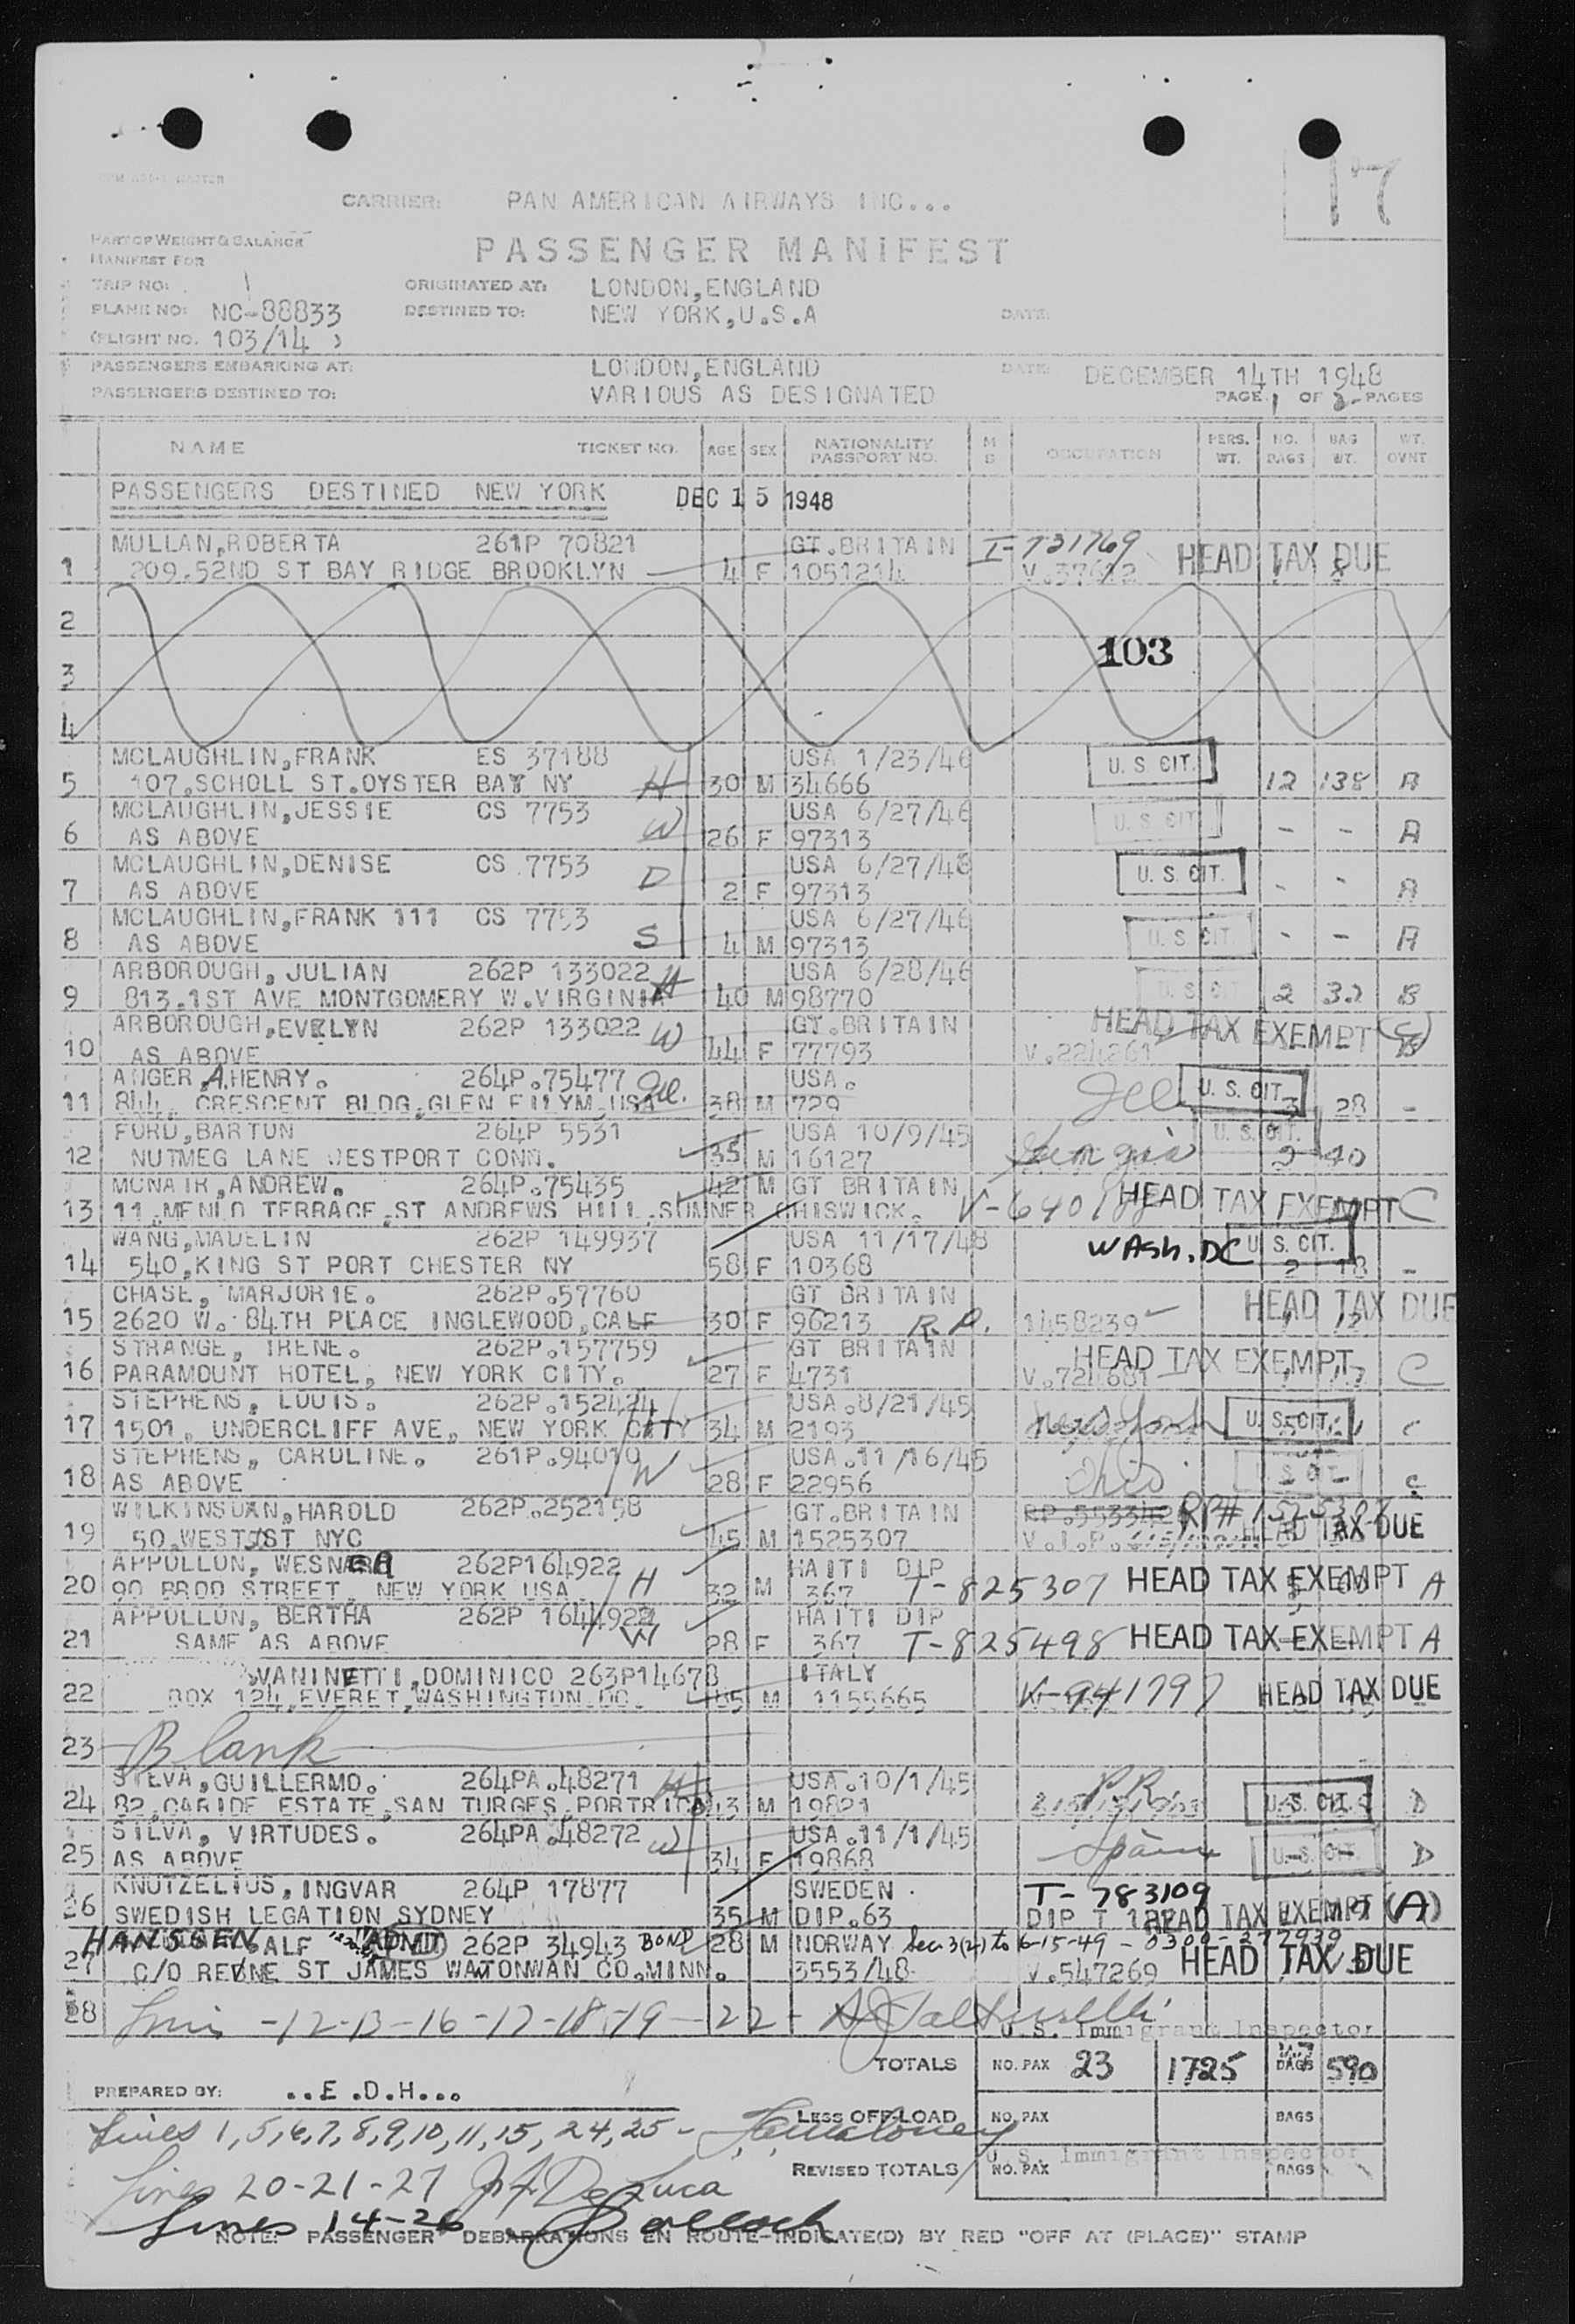 17
CARRIER: PAN AMERICAN AIRWAYS INC...
PART OF WEIGHT & BALANCE
MANIFEST FOR
PASSENGER MANIFEST
TRIP NO: 1 ORIGINATED AT: LONDON,ENGLAND
PLANE NO: NC-88833 DESTINED TO: NEW YORK,U.S.A DATE:
(FLIGHT NO. 103/14 )
PASSENGERS EMBARKING AT: LONDON,ENGLAND DATE: DECEMBER 14TH 1948
PASSENGERS DESTINED TO: VARIOUS AS DESIGNATED PAGE 1 OF 2 PAGES
NAME TICKET NO. AGE SEX NATIONALITY PASSPORT NO. M S OCCUPATION PERS. WT. NO. BAGS BAG WT. WT. OVNT
PASSENGERS DESTINED NEW YORK DEC 15 1948
MULLAN,ROBERTA 261P 70821 GT.BRITAIN I-731769 HEAD TAX DUE
1 209.52ND ST BAY RIDGE BROOKLYN 4 F 1051214 V.37612 1 8
2
3 103
4
MCLAUGHLIN,FRANK ES 37188 USA 1/23/46 U. S. CIT.
5 107.SCHOLL ST.OYSTER BAY NY H 30 M 34666 12 138 A
MCLAUGHLIN,JESSIE CS 7753 USA 6/27/46 U. S. CIT.
6 AS ABOVE W 26 F 97313 - - A
MCLAUGHLIN,DENISE CS 7753 USA 6/27/46 U. S. CIT.
7 AS ABOVE D 2 F 97313 - - A
MCLAUGHLIN,FRANK 111 CS 7753 USA 6/27/46 U. S. CIT.
8 AS ABOVE S 4 M 97313 - - A
ARBOROUGH,JULIAN 262P 133022 H USA 6/28/46 U. S. CIT
9 813.1ST AVE MONTGOMERY W.VIRGINIA 40 M 98770 2 32 B
ARBOROUGH,EVELYN 262P 133022 W GT.BRITAIN HEAD TAX EXEMPT (C)
10 AS ABOVE 44 F 77793 V.224261 B
ANGER,A.HENRY. 264P.75477 Ill. USA. Ill U. S. CIT.
11 844. CRESCENT BLDG.GLEN ELLYM.USA 38 M 729 3 28 -
FORD,BARTON 264P 5531 USA 10/9/45 U. S. CIT.
12 NUTMEG LANE WESTPORT CONN. 35 M 16127 Georgia 2 40
MCNAIR,ANDREW. 264P.75435 42 M GT BRITAIN HEAD TAX EXEMPT C
13 11.MENLO TERRACE.ST ANDREWS HILL.SUMNER CHISWICK. V-6401
WANG,MADELIN 262P 149937 USA 11/17/48 WASh. DC U. S. CIT.
14 540.KING ST PORT CHESTER NY 58 F 10368 2 18 -
CHASE, MARJORIE. 262P.57760 GT BRITAIN HEAD TAX DUE
15 2620 W. 84TH PLACE INGLEWOOD,CALF 30 F 96213 R.P. 1458239
STRANGE, IRENE. 262P.157759 GT BRITAIN HEAD TAX EXEMPT
16 PARAMOUNT HOTEL, NEW YORK CITY. 27 F 4731 V.724681 C
STEPHENS, LOUIS. 262P.152424 USA.8/21/45 U. S. CIT.
17 1501. UNDERCLIFF AVE, NEW YORK CITY 34 M 2193 New York C
STEPHENS, CAROLINE. 261P.94010 USA.11/16/45
18 AS ABOVE W 28 F 22956 Ohio C
WILKINSON,HAROLD 262P.252158 GT.BRITAIN RP# 1525307
19 50.WEST ST NYC 45 M 1525307 HEAD TAX DUE
APPOLLON, WESNER 262P164922 HAITI DIP
20 90 BROD STREET. NEW YORK USA. H 32 M 367 T-825307 HEAD TAX EXEMPT A
APPOLLON, BERTHA 262P 164922 HAITI DIP
21 SAME AS ABOVE W 28 F 367 T-825498 HEAD TAX EXEMPT A
VANINETTI,DOMINICO 263P14678 ITALY
22 BOX 124.EVERET,WASHINGTON.DC. M 1155665 V-941797 HEAD TAX DUE
23 Blank
SILVA,GUILLERMO. 264PA.48271 H USA.10/1/45 P R
24 82.CARIDE ESTATE,SAN TURGES.PORTRICO 43 M 19821 U. S. CIT. D
SILVA, VIRTUDES. 264PA.48272 W USA.11/1/45
25 AS ABOVE 34 F 19868 Spain U. S. CIT. D
KNUTZELIUS,INGVAR 264P 17877 SWEDEN T-783109
26 SWEDISH LEGATION SYDNEY 35 M DIP.63 DIP T HEAD TAX EXEMPT (A)
HANSSEN ALF ADMD 262P 34943 BOND 28 M NORWAY Sec 3(2) to 6-15-49 - 0300-277939
27 C/O REVNE ST JAMES WATONWAN CO.MINN. 3553/48 V.547269 HEAD TAX DUE
28 Lines -12-13-16-17-18-19-22-
U. S. Immigrant Inspector
TOTALS NO. PAX 23 1725 BAGS 590
PREPARED BY: ..E.D.H...
LESS OFF-LOAD NO. PAX BAGS
Lines 1,5,6,7,8,9,10,11,15,24,25-
U. S. Immigrant Inspector
REVISED TOTALS NO. PAX BAGS
Lines 20-21-27 J. F. DeLuca
Lines 14-26
NOTE: PASSENGER DEBARKATIONS EN ROUTE-INDICATE(D) BY RED "OFF AT (PLACE)" STAMP